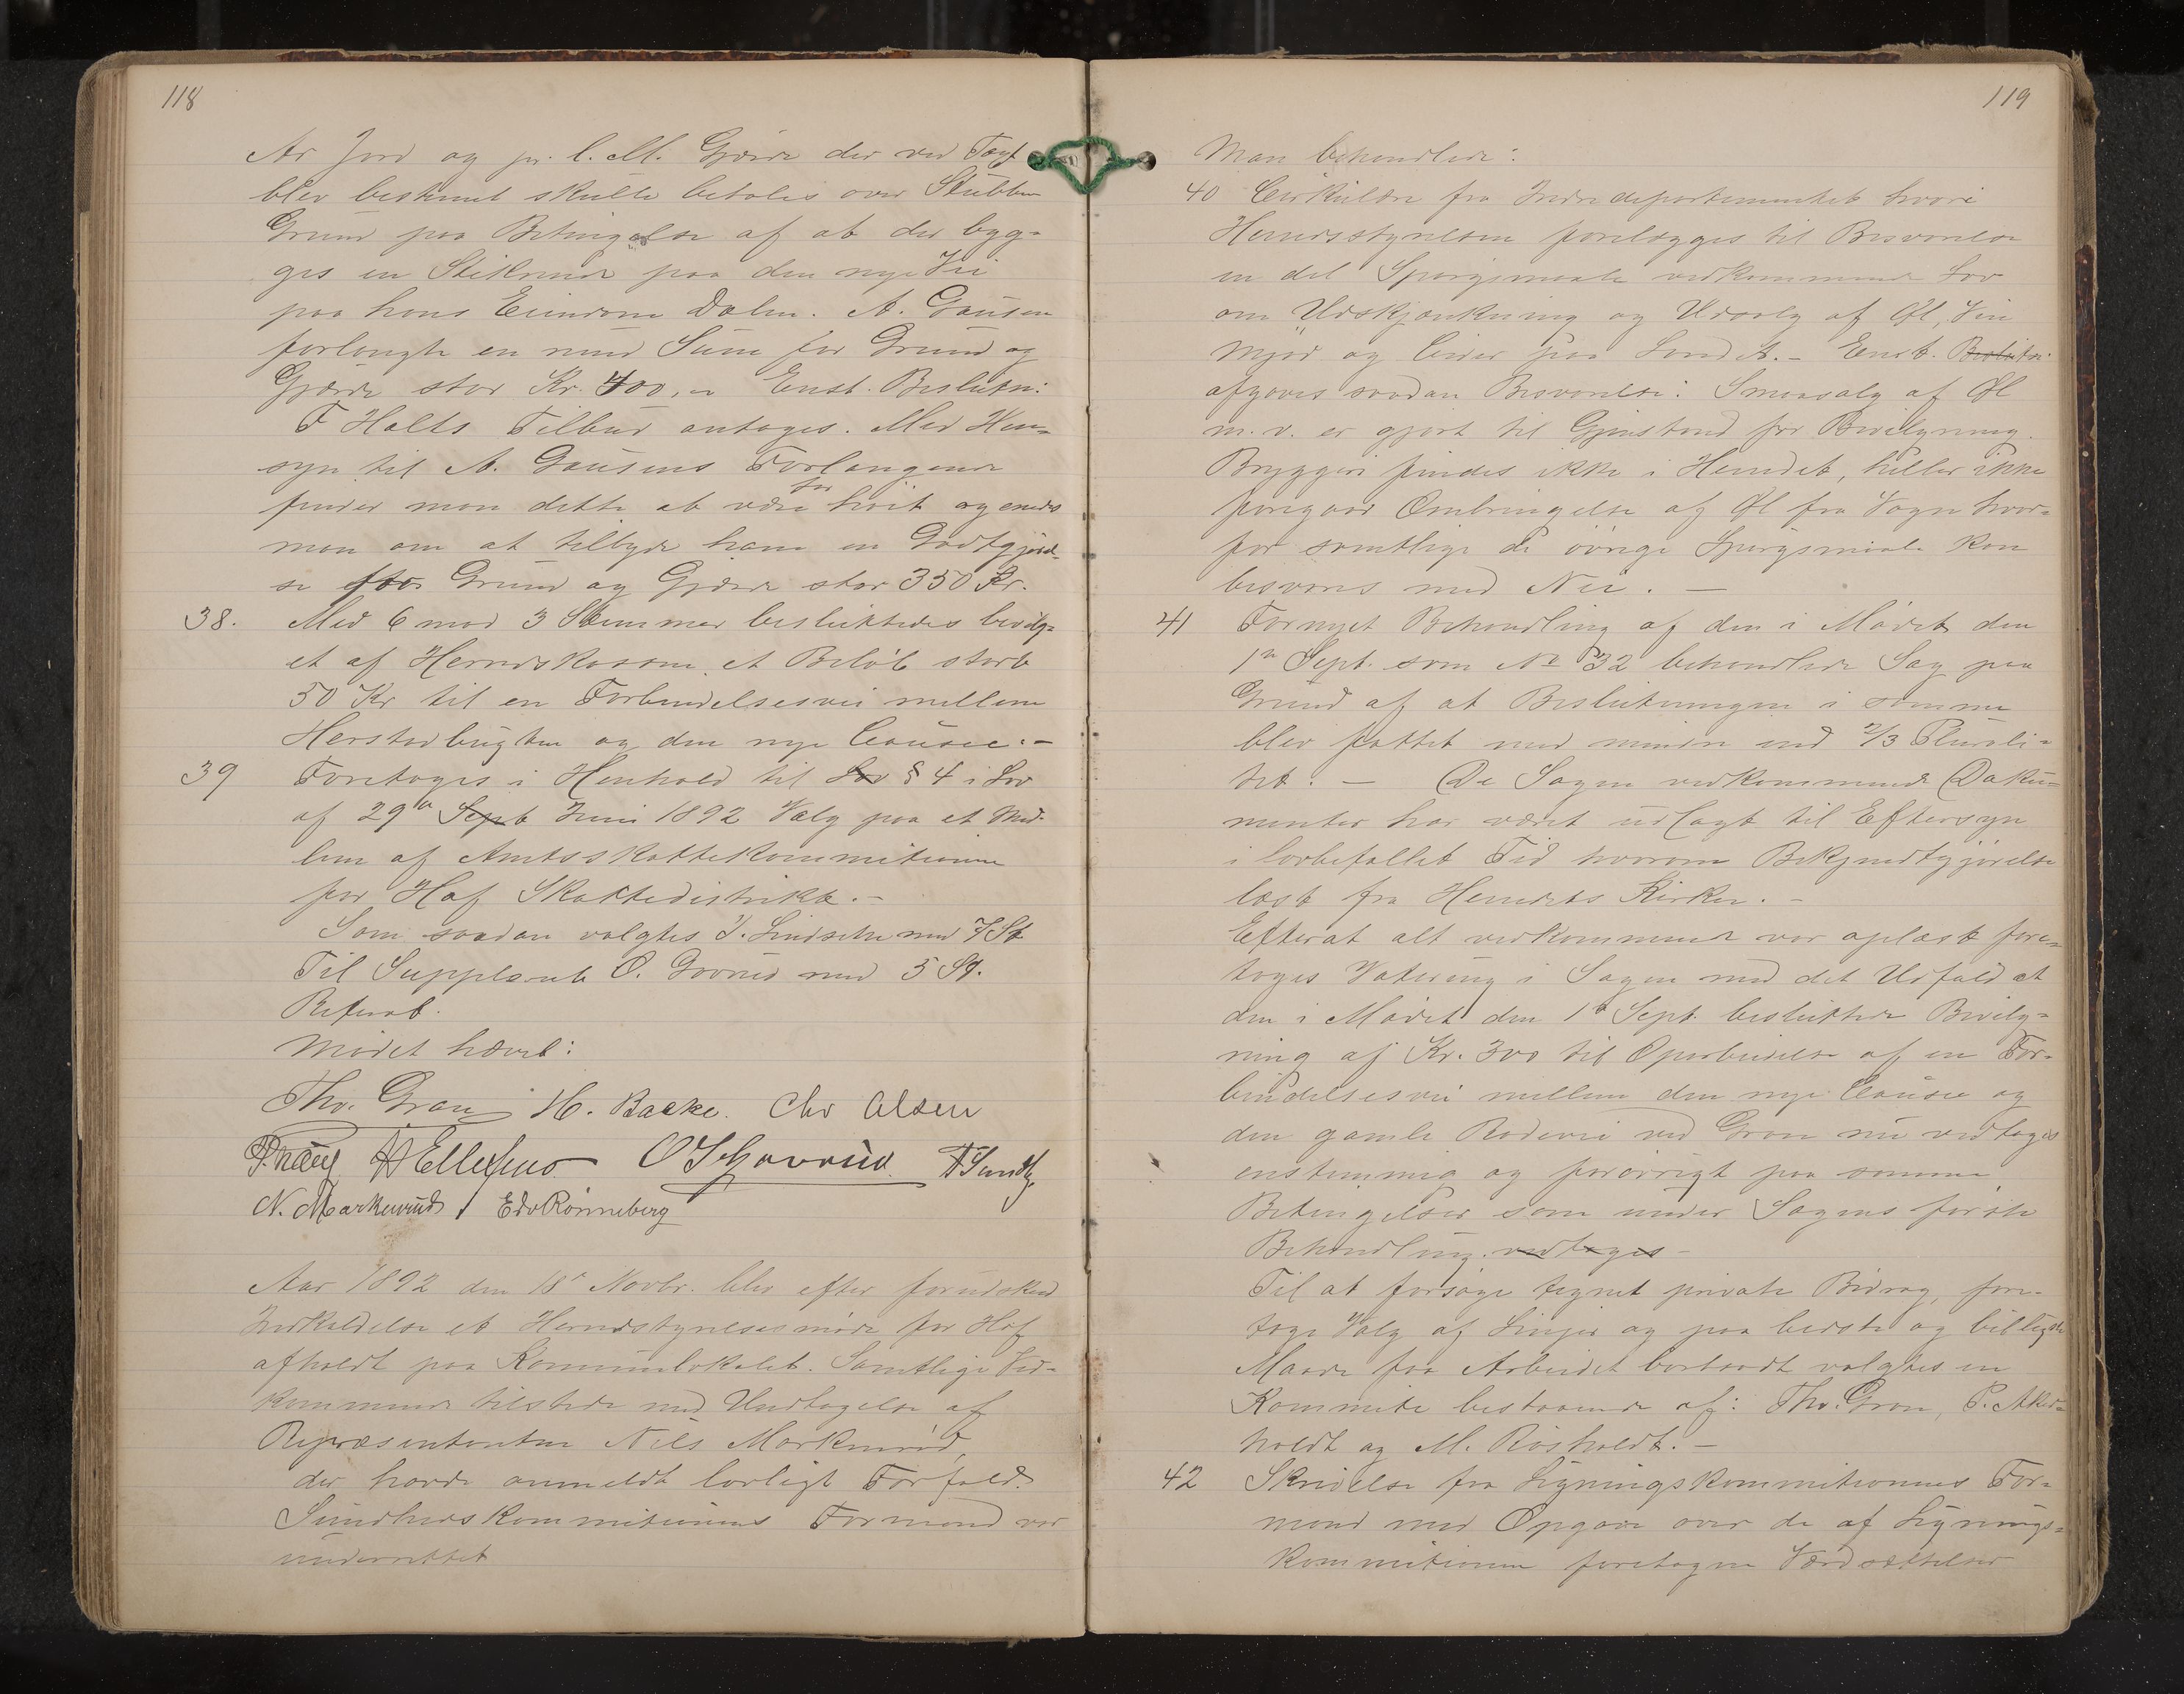 118
Ar Jord og pr. l. M. Gjærde der ved Taxt
blev bestemt skulle betales over Stubben
Grund paa Betingelse af at der byg-
ges en Stikrende paa den nye Vei
paa hans Eiendom Dalen. A. Gausen
forlangte en rund Sum for Grund og
Gjærde stor Kr. 400,- Enst. Beslutn:
F Holts Tilbud antoges. Med Hen-
syn til A. Gausens Forlangende
finder man dette at være for høit og enedes
man om at tilbyde ham en Godtgjørel-
se for Grund og Gjærde stor 350 Kr.
38. Med 6 mod 3 Stemmer besluttedes bevilg-
et af Herredskassen et Beløb stort
50 Kr til en Forbindelsesvei mellem
Herstadbugten og den nye Causee.-
39 Foretoges i Henhold til Lov § 4 i Lov
af 29de Sept Juni 1892 Valg paa et Med-
lem af Amtsskattekommitionen
for Hof Skattedistrikt.-
Som saadan valgtes I. Lindseth med 7 St
Til Suppleant O. Govrud med 5 St.
Referat.
Mødet hævet:
Tho. Gran H. Backe. Chr Olsen
H Ellefsens O T Govrud. T Sundby
N. Markerud Edv Rønneberg
Aar 1892 den 18de Novbr. blev efter forudskeed
Indkaldelse et Herredsstyrelsesmøde for Hof
afholdt paa Komunelokalet. Samtlige Ved-
kommende tilstede med Undtagelse af
Repræsentanten Nils Markerud,
der havde anmeldt lovligt Forfald.
Sundhedskommitionens Formand var
underrettet
119
Man behandlede:
40 Cirkulære fra Indredepartementet hvori
Herredsstyrelsen forelægges til Besvarelse
en del Spørgsmaale vedkommende Lov
om Udskjænkning og Udsalg af Øl, Vin
Mjød og Cider paa Landet.- Enst. Beslutn:
afgaves saadan Besvarelse: Smaasalg af Øl
m. v. er gjort til Gjenstand for Bevilgning.
Bryggeri findes ikke i Herredet, heller ikke
foregaar Ombringelse af Øl fra Vogn hvor-
for samtlige de øvrige Spørgsmaale kan
besvares med Nei. -
41 Fornyet Behandling af den i Mødet den
1ste Sept. som No 32 behandlede Sag paa
Grund af at Beslutningen i samme
blev fattet med mindre end 2/3 Plurali-
tet. - De Sagen vedkommende Doku-
menter har været udlagt til Eftersyn
i lovbefallet Tid hvorom Bekjendtgjørelse
læst fra Herredets Kirker. -
Efterat alt vedkommende var oplæst fore-
toges Votering i Sagen med det Udfald at
den i Mødet den 1ste Sept. besluttede Bevilg-
ning af Kr. 300 til Oparbeidelse af en For-
bindelsesvei mellem den nye Causee og
den gamle Rodevei ved Gran nu vedtoges
enstemmig og forøvrigt paa samme
Betingelser som under Sagens første
Behandling. vedtoges -
Til at forsøge tegnet private Bidrag, fore-
tage Valg af Linjer og paa bedste og billigste
Maade faa Arbeidet bortsadt valgtes en
Kommite bestaaende af: Tho. Gran, P. Aker-
holdt og M. Røsholdt. -
42 Skrivelse fra Ligningskommitionens For-
mand med Opgave over de af Lignings-
kommitionen foretagne Værdsættelser